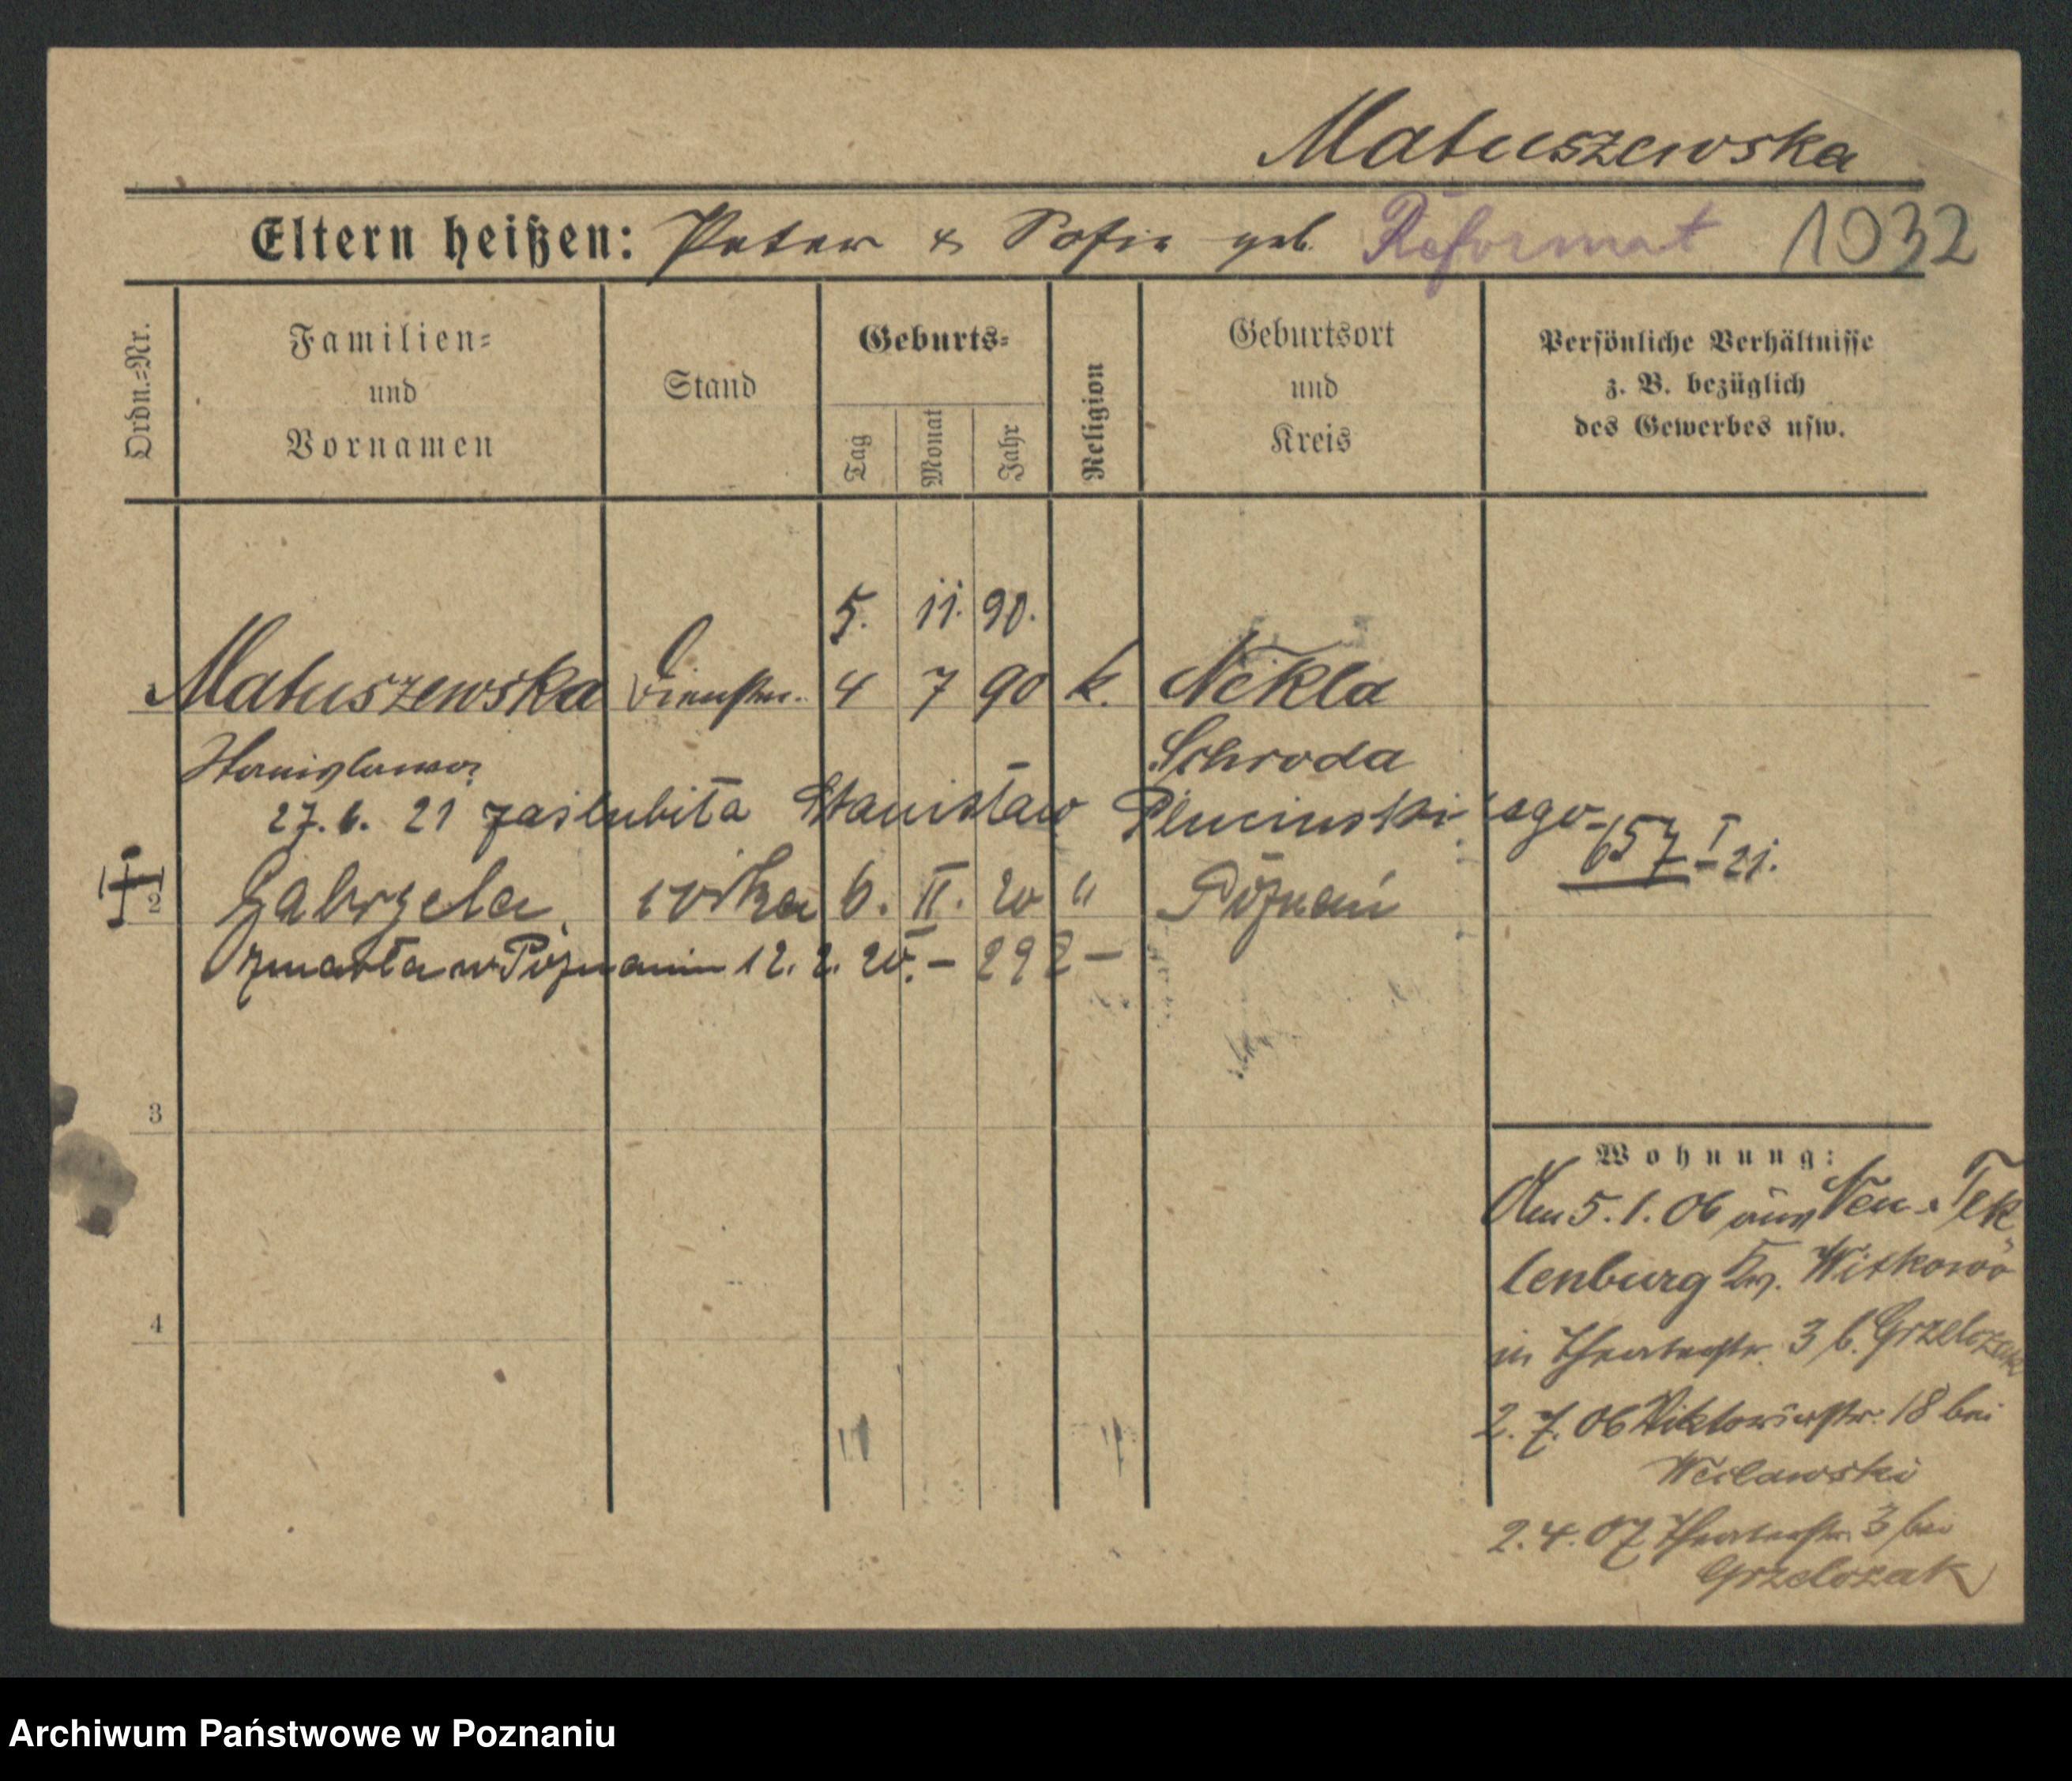 Matuszewska
Eltern heißen: Peter & Sofie geb. Reformat 1032
Ordn.=Nr.
Familien=
und
Vornamen
Stand
Geburts=
Tag
Monat
Jahr
Religion
Geburtsort
und
Kreis
Persönliche Verhältnisse
z. B. bezüglich
des Gewerbes usw.
5. 11. 90.
Matuszewska Dienstm. 4 7 90 k. Nekla
Stanislawa Schroda
27.6. 21 zaślubiła Stanisław Plucinski ego 657 I - 21.
2 Gabryela córka 6. II. 20 " Poznań
zmarła w Poznaniu 12. 2. 20. - 292 -
3
4
Wohnung:
Am 5.1.06 aus Neu-Tek
lenburg Kr. Witkowo
in Theaterstr. 3 b. Grzelczak
2. 7. 06 Viktoriastr. 18 bei
Weclawski
2.4.07 Theaterstr. 3 bei
Grzelczak
Archiwum Państwowe w Poznaniu